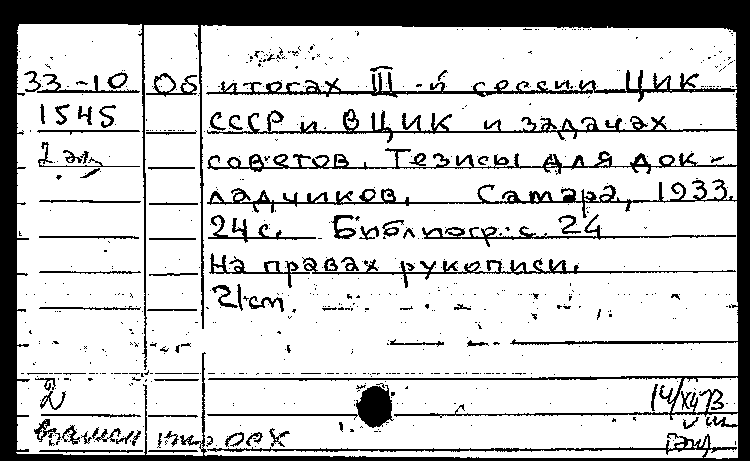 33-10 Об итогах III-й сессии ЦИК
1545 СССР и ВЦИК и задачах
2 экз советов. Тезисы для док-
ладчиков. Самара, 1933.
24 с. Библиогр: с. 24
На правах рукописи.
21 cm
2 14/XII 73
взамен